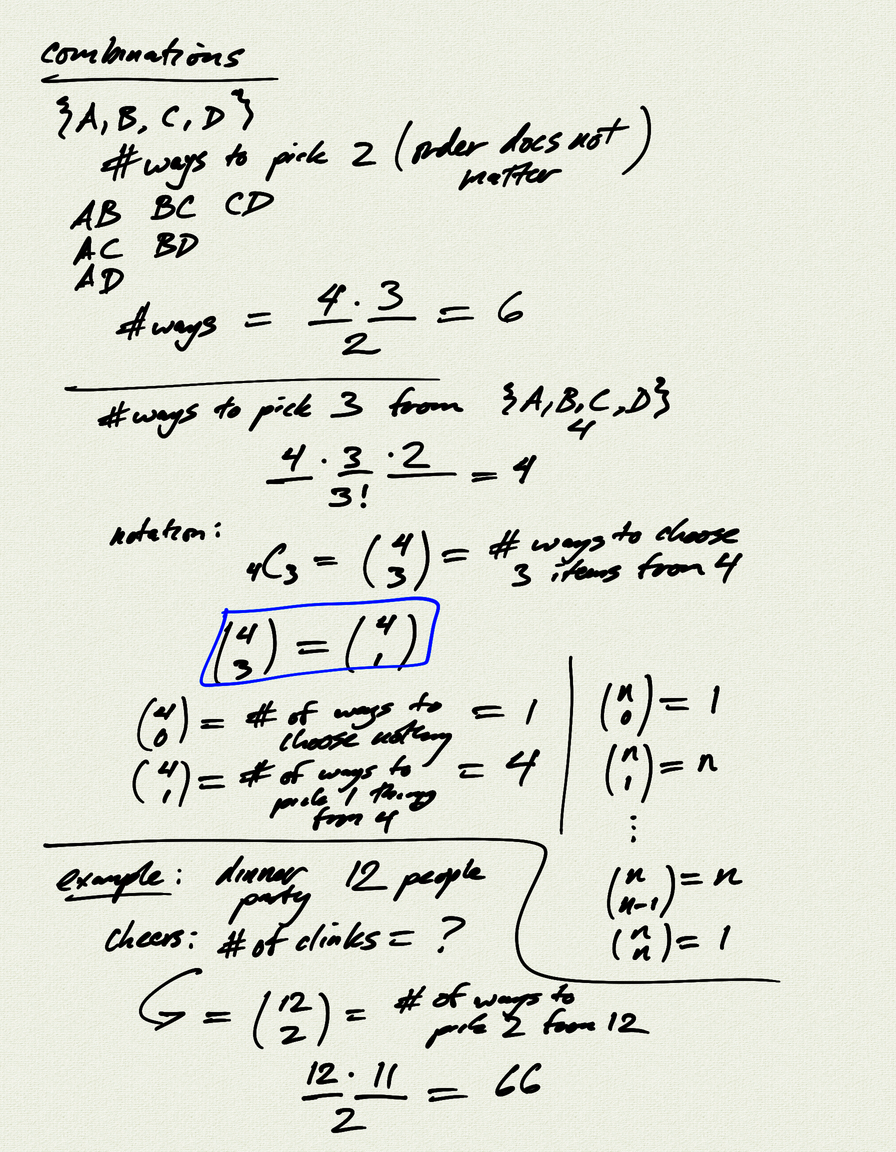 combinations
{A, B, C, D}
# ways to pick 2 (order does not matter)
AB BC CD
AC BD
AD
# ways = 4 · 3 / 2 = 6
# ways to pick 3 from {A, B, C, D}
4
4 · 3 · 2 / 3! = 4
notation:
₄C₃ = (4 3) = # ways to choose 3 items from 4
(4 3) = (4 1)
(4 0) = # of ways to choose nothing = 1
(4 1) = # of ways to pick 1 thing from 4 = 4
(n 0) = 1
(n 1) = n
⋮
(n n-1) = n
(n n) = 1
example: dinner party 12 people
cheers: # of clinks = ?
= (12 2) = # of ways to pick 2 from 12
12 · 11 / 2 = 66